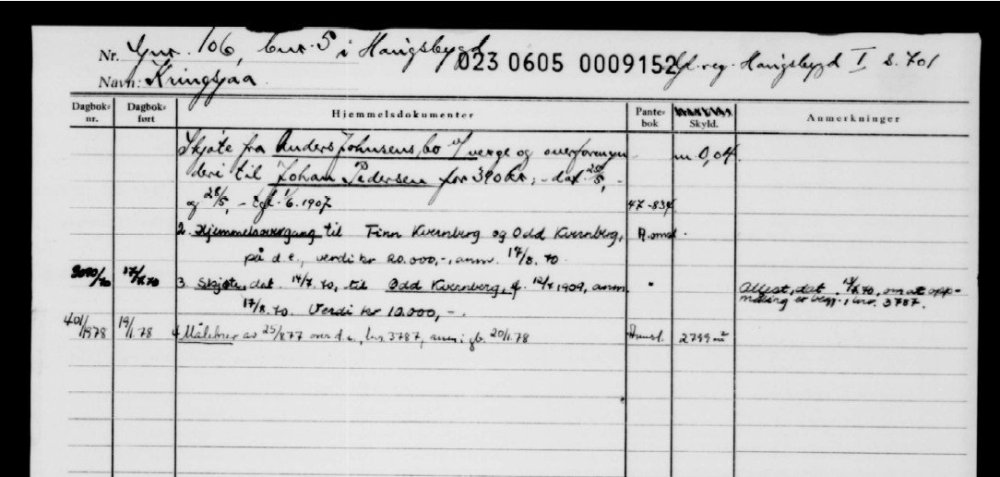 Nr. Gnr. 106, bnr. 5 i Haugsbygd 023 0605 0009152 Gl. reg. Haugsbygd I s. 701
Navn: Kringsjaa
Dagbok-nr. Dagbok-ført Hjemmelsdokumenter Pante-bok Skyld. Anmerkninger
Skjøte fra Anders Johnsens bo v/ verge og overformyn m 0,04.
deri til Johan Pedersen for 390 kr, - dat. 25/5, -
og 28/5, - tgl. 1/6. 1907 47-834
2. Hjemmelsovergang til Finn Kvernberg og Odd Kvernberg, A.omsl.
på d.e., verdi kr 20.000,-, anm. 17/8. 70.
70 70 3. Skjøte, dat. 14/7. 70, til Odd Kvernberg, f. 1909, anm. " Attest, dat. 70, om at opp-
17/8. 70. Verdi kr 10.000,-. måling er begj., bnr. 3787.
401/1978 19/1.78 4 Målebrev av 25/8 77 over d.e., bnr. 3787, anm. i gb. 20/1.78 2799 m²